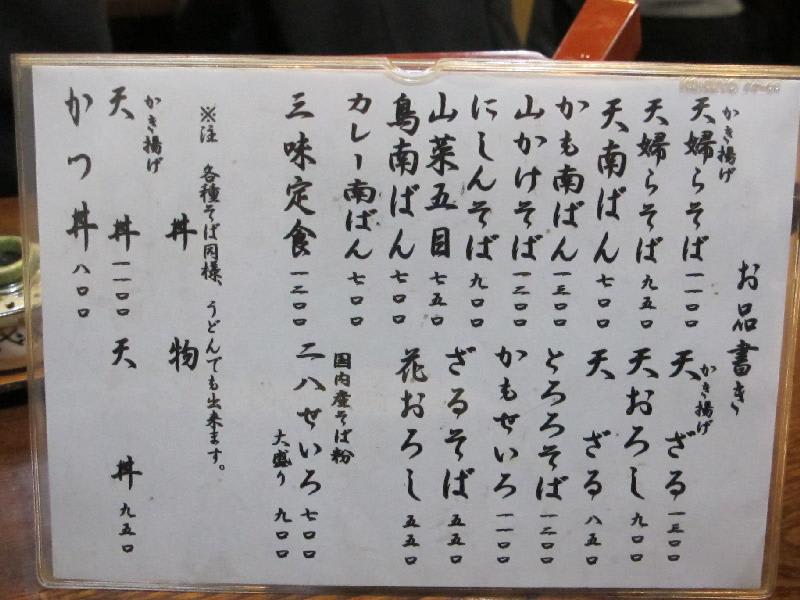 お品書き
かき揚げ
天婦らそば 一一〇〇
天婦らそば 九五〇
天南ばん 七〇〇
かも南ばん 一三〇〇
山かけそば 一二〇〇
にしんそば 九〇〇
山菜五目 七五〇
鳥南ばん 七〇〇
カレー南ばん 七〇〇
三味定食 一二〇〇
かき揚げ
天ざる 一三〇〇
天おろし 九〇〇
天ざる 八五〇
とろろそば 一二〇〇
かもせいろ 一一〇〇
ざるそば 五五〇
花おろし 五五〇
国内産そば粉
二八せいろ 七〇〇
大盛り 九〇〇
※注 各種そば同様、うどんでも出来ます。
丼物
かき揚げ
天丼 一一〇〇
天丼 九五〇
かつ丼 八〇〇